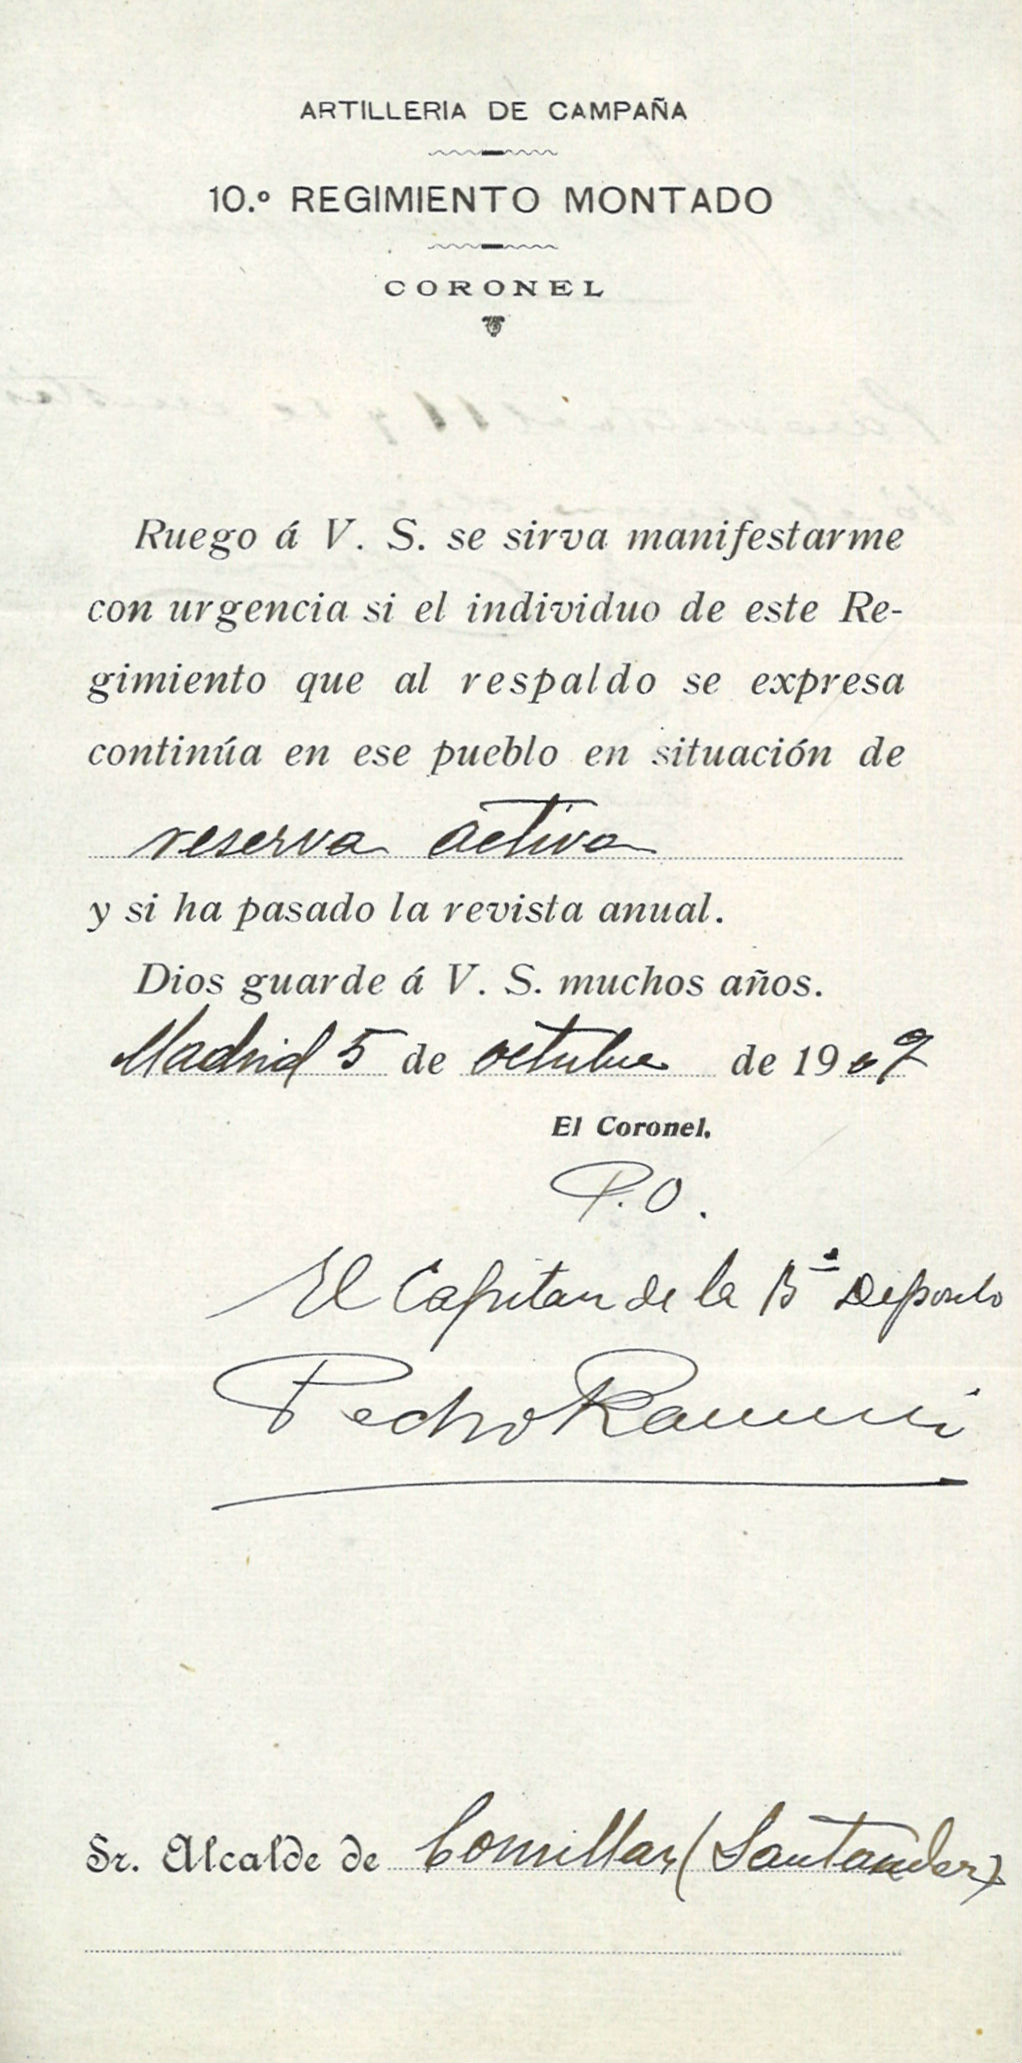 ARTILLERIA DE CAMPAÑA
10.º REGIMIENTO MONTADO
CORONEL
Ruego á V. S. se sirva manifestarme
con urgencia si el individuo de este Re-
gimiento que al respaldo se expresa
continúa en ese pueblo en situación de
reserva activa
y si ha pasado la revista anual.
Dios guarde á V. S. muchos años.
Madrid 5 de octubre de 1909
El Coronel.
P.O.
El Capitan de la Bª Deposito
Pedro Ramirez
Sr. Alcalde de Comillas (Santander)